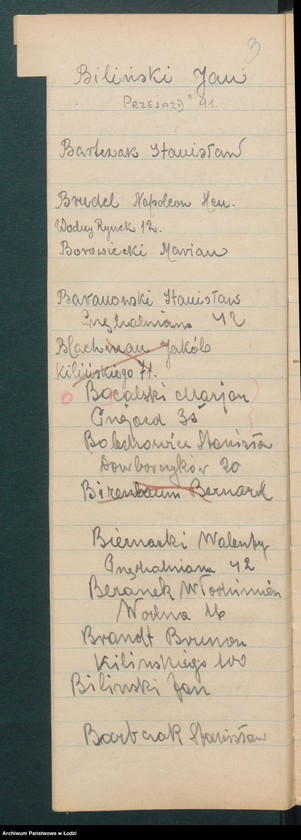 3
Biliński Jan
PRZEJAZD 91.
Bartczak Stanisław
Brudel Napoleon Hen.
Wodny Rynek 12.
Borowiecki Marian
Baranowski Stanisław
Przędzalniana 42
Blachman Jakób
Kilińskiego 71.
Bocalski Marjan
Przejazd 35
Bolechowicz Stanisław
Dowborczyków 20
Birenbaum Bernard
Biernacki Walenty
Przędzalniana 42
Beranek Włodzimierz
Wodna 16
Brandt Brunon
Kilinskiego 100
Bilinski Jan
Bartczak Stanisław
Archiwum Państwowe w Łodzi